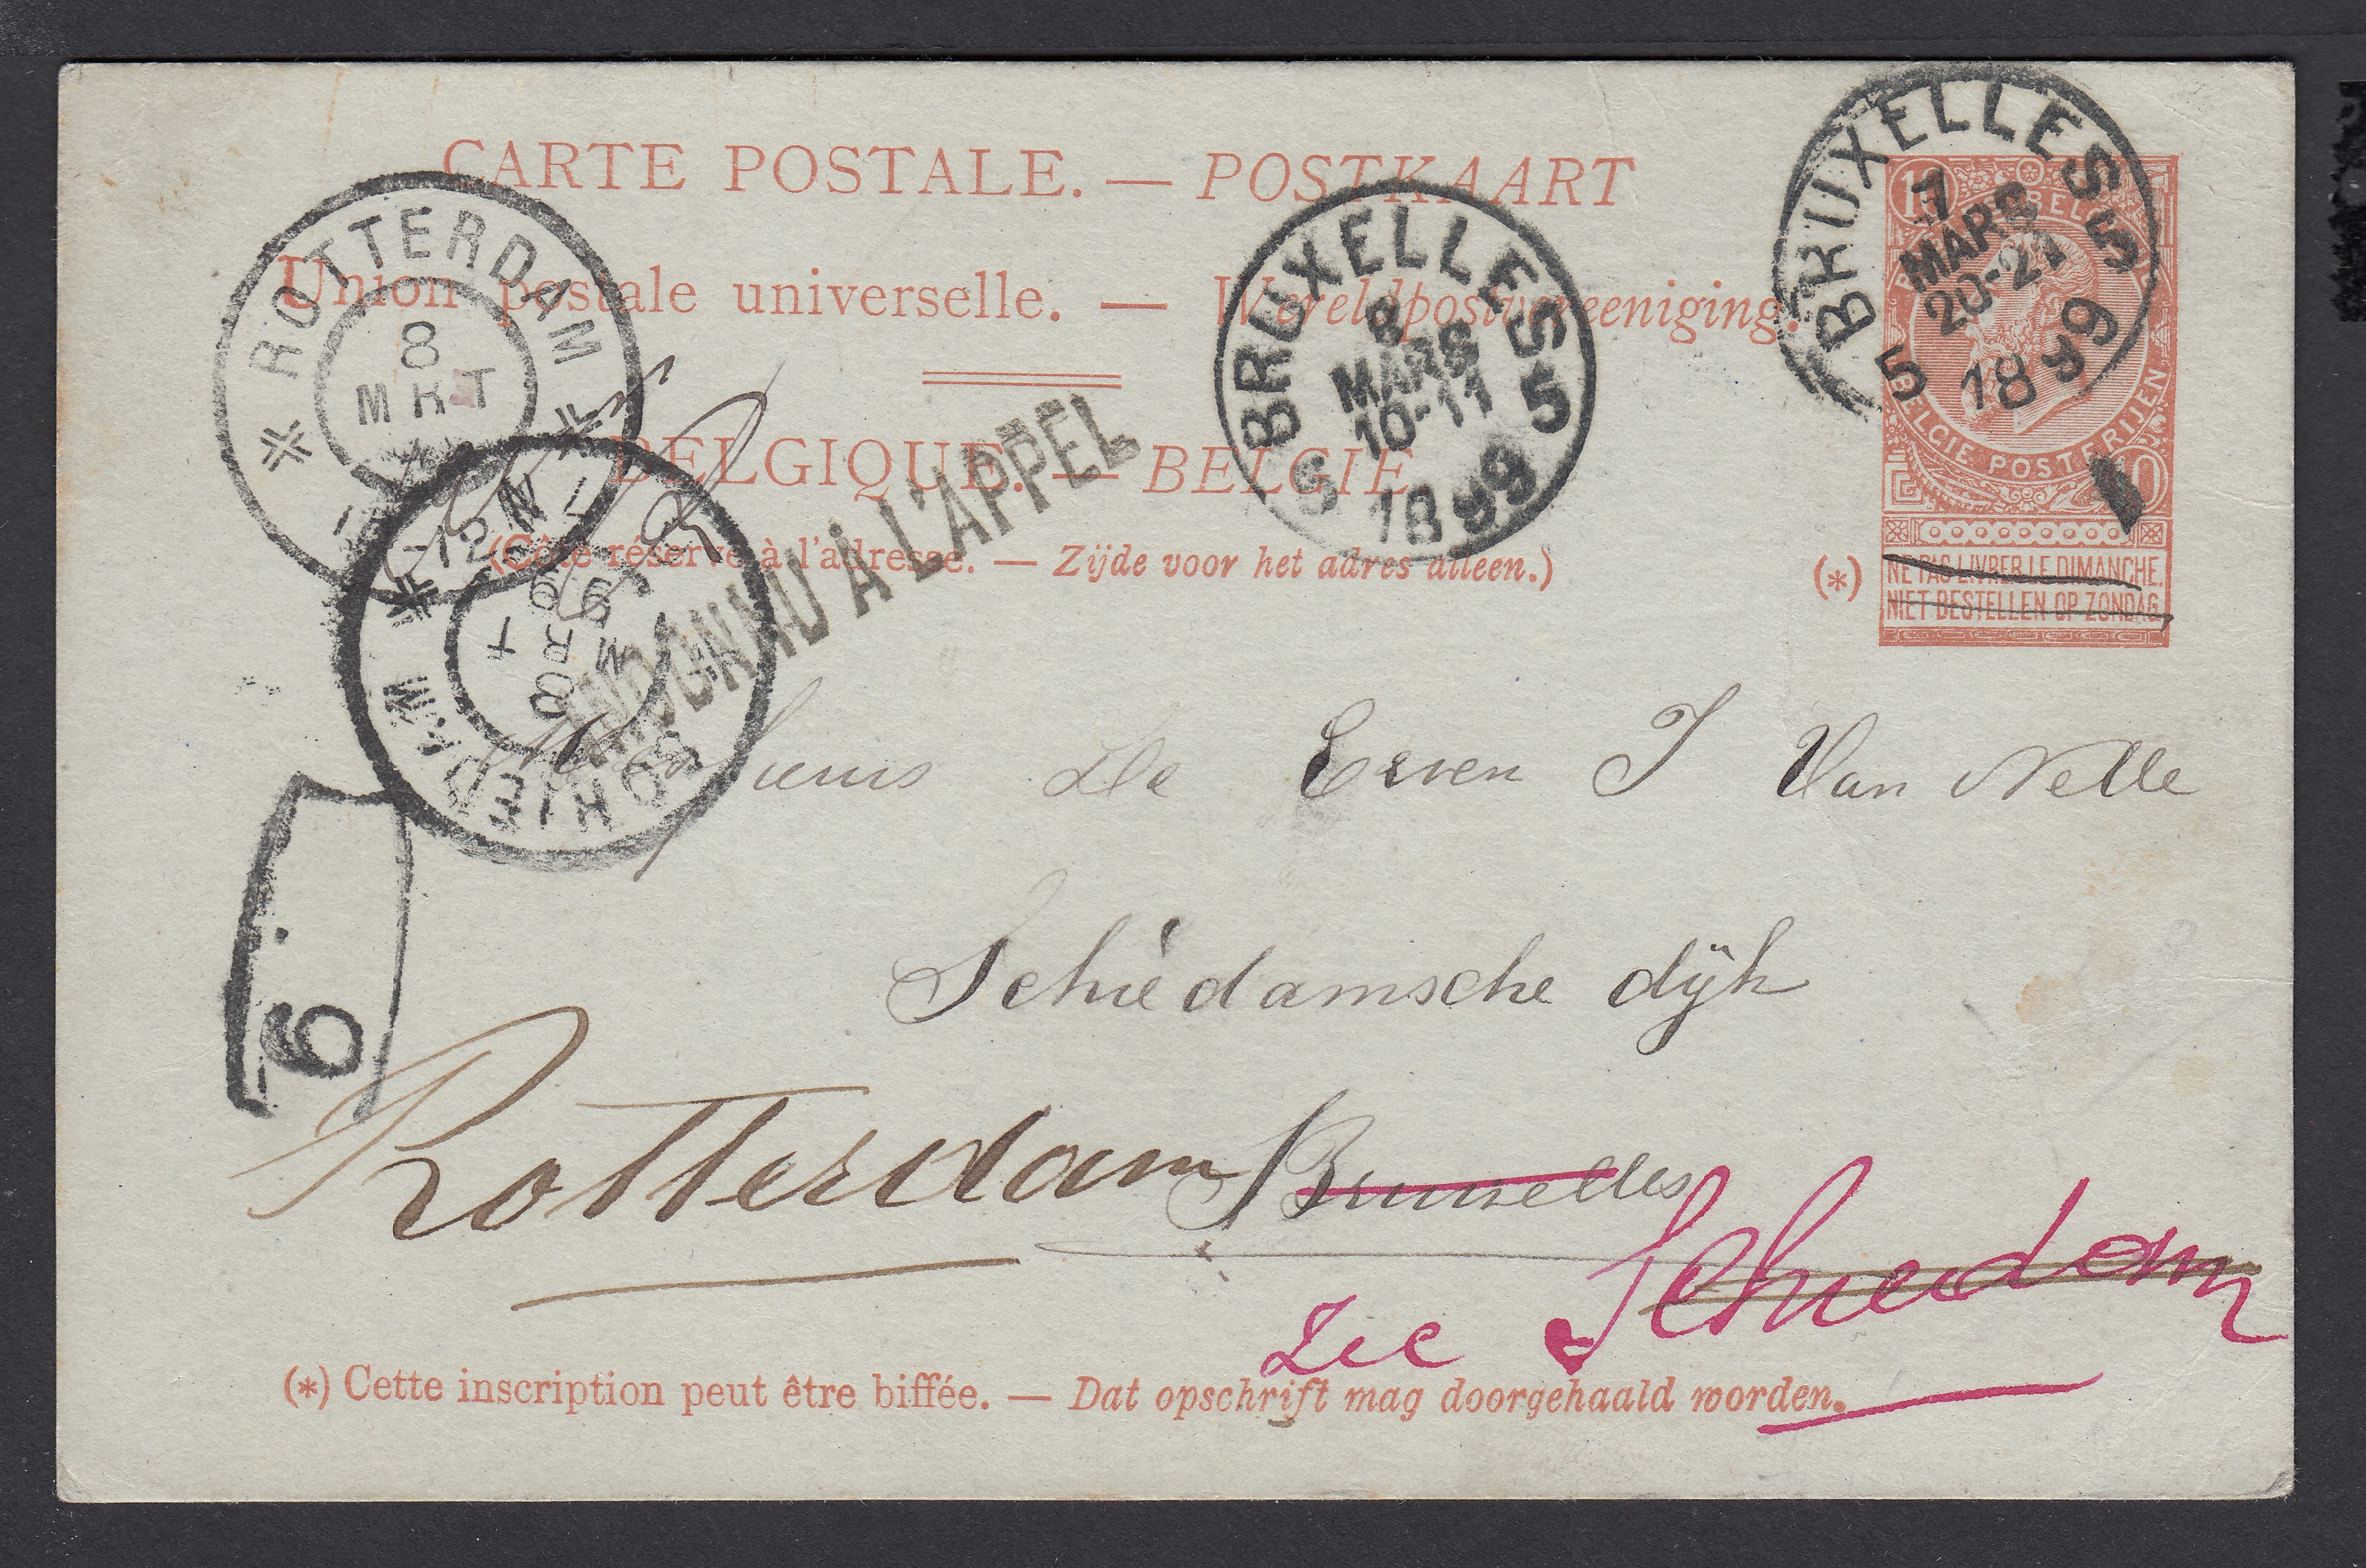 CARTE POSTALE. — POSTKAART
Union postale universelle. — Wereldpostvereeniging.
BELGIQUE. — BELGIË
(Côté réservé à l'adresse. — Zijde voor het adres alleen.)
BRUXELLES 5
7
MARS
20-21
1899
5
10
BELGIE POSTERIJEN
10
(*)
NE PAS LIVRER LE DIMANCHE.
NIET BESTELLEN OP ZONDAG.
BRUXELLES 5
8
MARS
10-11
1899
5
ROTTERDAM
8
MRT
SCHIEDAM
8 MRT 99
INCONNU À L'APPEL
De Erven J Van Nelle
Schiedamsche dijk
Rotterdam
Bruxelles
Zee Schiedam
9
(*) Cette inscription peut être biffée. — Dat opschrift mag doorgehaald worden.